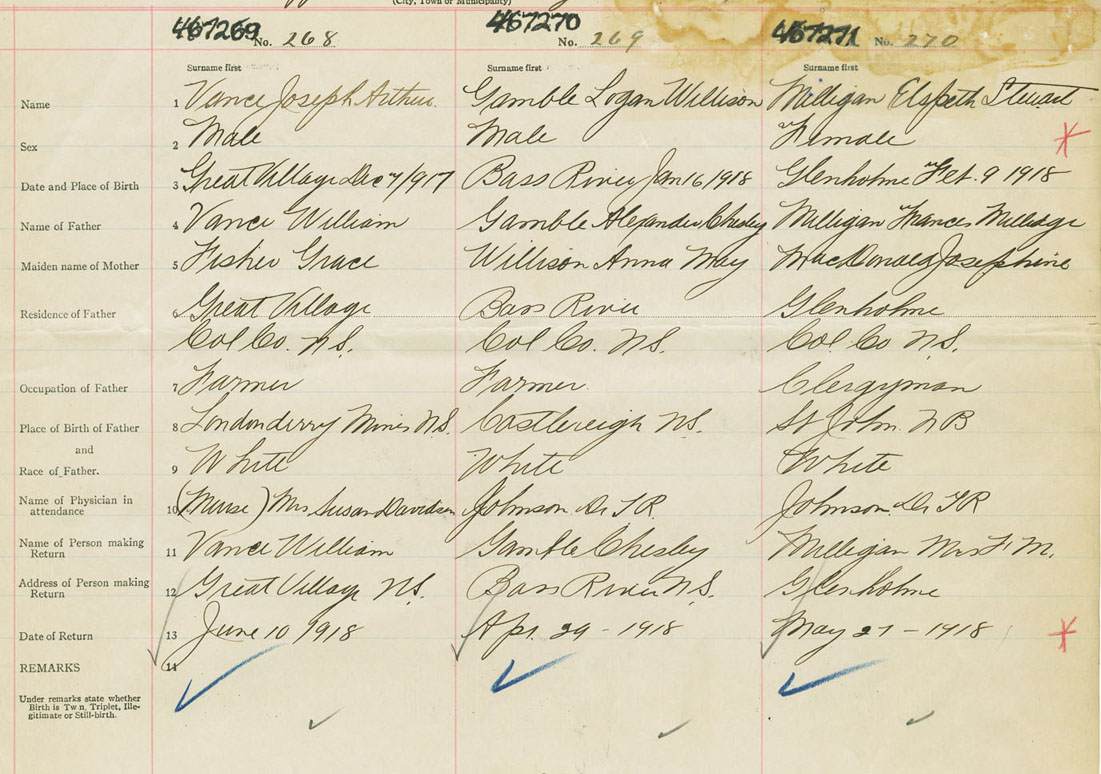 (City, Town or Municipality)
467269 No. 268 467270 No. 269 467271 No. 270
Surname first Surname first Surname first
Name 1 Vance Joseph Arthur Gamble Logan Willison Milligan Elspeth Stewart
Sex 2 Male Male Female
Date and Place of Birth 3 Great Village Dec 7/1917 Bass River Jan 16 1918 Glenholme Feb. 9 1918
Name of Father 4 Vance William Gamble Alexander Chesley Milligan Frances Milledge
Maiden name of Mother 5 Fisher Grace Willison Anna May MacDonald Josephine
Residence of Father 6 Great Village Bass River Glenholme
Col Co. N.S. Col Co. N.S. Col Co N.S.
Occupation of Father 7 Farmer Farmer Clergyman
Place of Birth of Father 8 Londonderry Mines N.S. Castlereigh N.S. St John N B
and
Race of Father. 9 White White White
Name of Physician in attendance 10 (Nurse) Mrs Susan Davidson Johnson Dr T R Johnson Dr T R
Name of Person making Return 11 Vance William Gamble Chesley Milligan Mrs F M.
Address of Person making Return 12 Great Village N.S. Bass River N.S. Glenholme
Date of Return 13 June 10 1918 Apr 29 - 1918 May 27 - 1918
REMARKS 14
Under remarks state whether
Birth is Twn, Triplet, Ille-
gitimate or Still-birth.